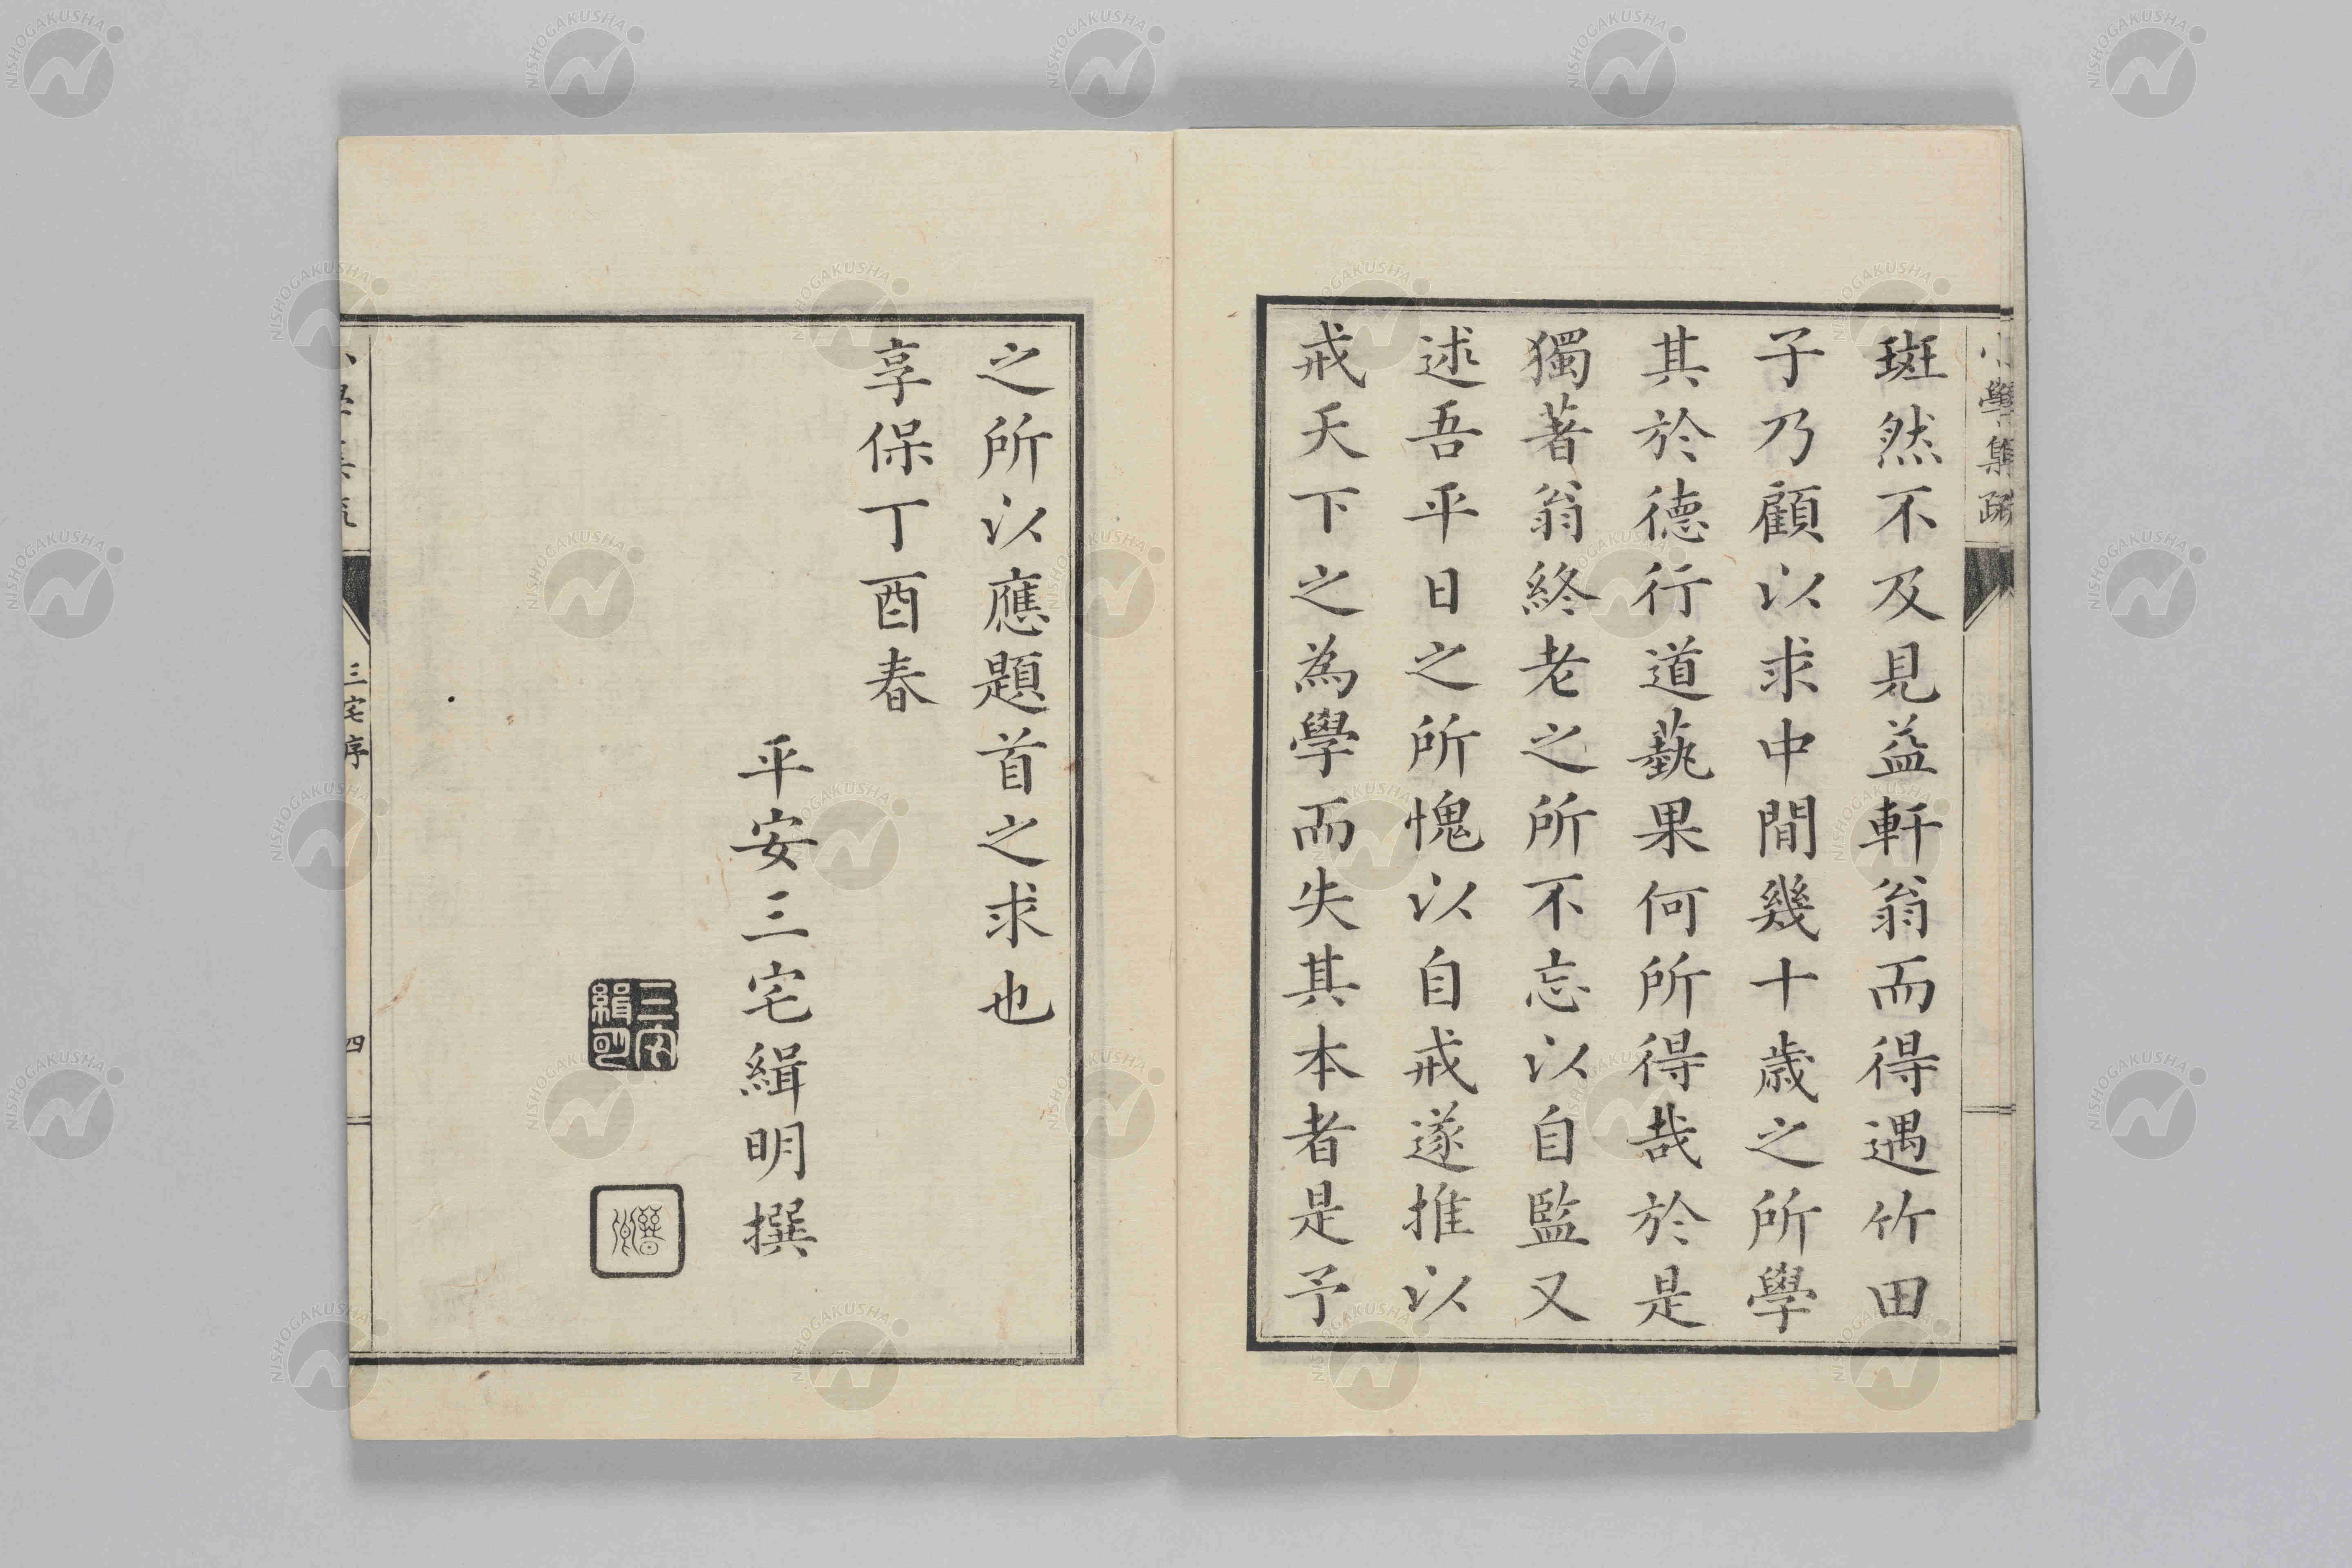 小學集疏
斑然不及見益軒翁而得遇竹田
子乃顧以求中閒幾十歳之所學
其於德行道藝果何所得哉於是
獨著翁終老之所不忘以自監又
述吾平日之所愧以自戒遂推以
戒天下之為學而失其本者是予
之所以應題首之求也
享保丁酉春
平安三宅緝明撰
三宅緝明
三宅序
四
NISHOGAKUSHA